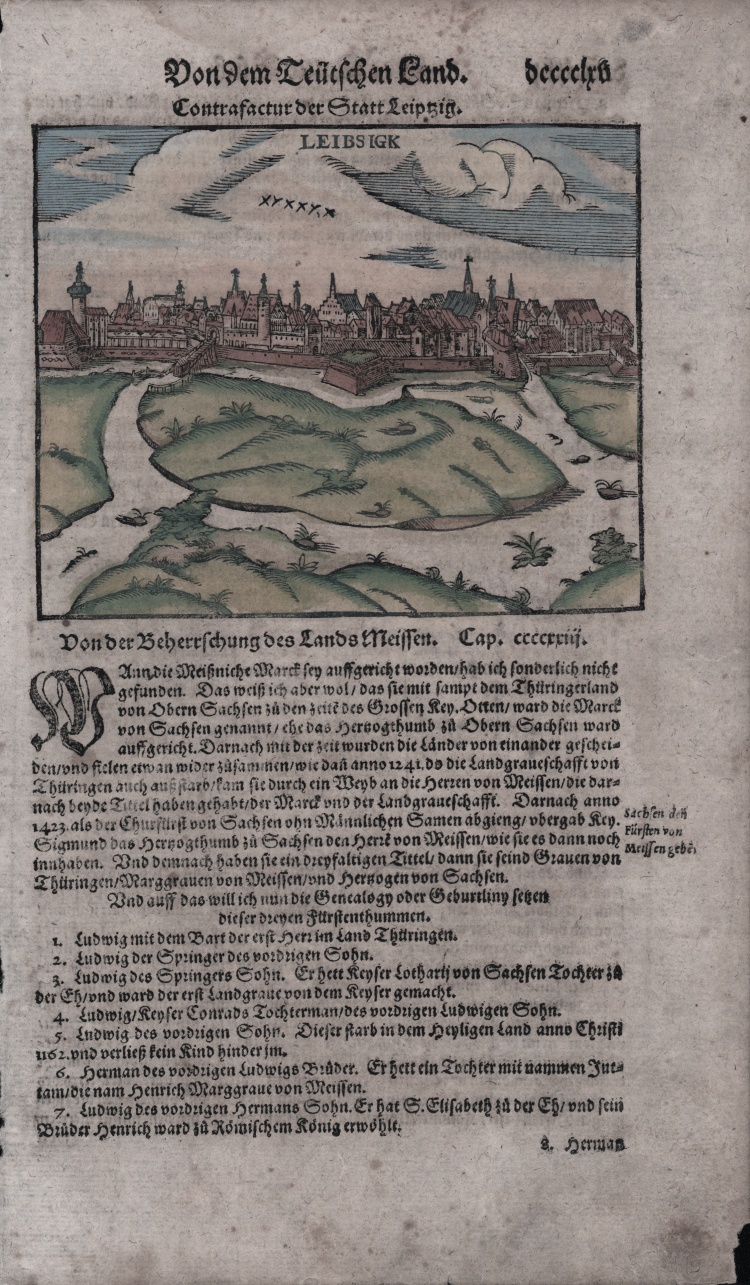 Von dem Teütschen Land. dcccclxv
Contrafactur der Statt Leiptzig.
LEIBSIGK
Von der Beherrschung des Lands Meissen. Cap. ccccxxiij.
WAnn die Meißniche Marck sey auffgericht worden/hab ich sonderlich nicht
gefunden. Das weiß ich aber wol/das sie mit sampt dem Thüringerland
von Obern Sachsen zů den zeitẽ des Grossen Key. Otten/ward die Marck
von Sachsen genannt/ehe das Hertzogthumb zů Obern Sachsen ward
auffgericht. Darnach mit der zeit wurden die Länder von einander geschei-
den/vnd fielen etwan wider zůsammen/wie dañ anno 1241.do die Landgraueschafft von
Thüringen auch außstarb/kam sie durch ein Weyb an die Herren von Meissen/die dar-
nach beyde Tittel haben gehabt/der Marck vnd der Landgraueschafft. Darnach anno
1423.als der Churfürst von Sachsen ohn Männlichen Samen abgieng/vbergab Key.
Sigmund das Hertzogthumb zů Sachsen den Herrẽ von Meissen/wie sie es dann noch
innhaben. Vnd demnach haben sie ein dreyfaltigen Tittel/dann sie seind Grauen von
Thüringen/Marggrauen von Meissen/vnd Hertzogen von Sachsen.
Sachsen den
Fürsten von
Meissen gebẽ.
Vnd auff das will ich nun die Genealogy oder Geburtliny setzen
dieser dreyen Fürstenthummen.
1. Ludwig mit dem Bart der erst Herr im Land Thüringen.
2. Ludwig der Springer des vordrigen Sohn.
3. Ludwig des Springers Sohn. Er hett Keyser Lotharij von Sachsen Tochter zů
der Eh/vnd ward der erst Landgraue von dem Keyser gemacht.
4. Ludwig/Keyser Conrads Tochterman/des vordrigen Ludwigen Sohn.
5. Ludwig des vordrigen Sohn. Dieser starb in dem Heyligen Land anno Christi
1162.vnd verließ kein Kind hinder jm.
6. Herman des vordrigen Ludwigs Brůder. Er hett ein Tochter mit nammen Jut-
tam/die nam Henrich Marggraue von Meissen.
7. Ludwig des vordrigen Hermans Sohn. Er hat S. Elisabeth zů der Eh/vnd sein
Brůder Henrich ward zů Römischem König erwöhlt.
8. Herman